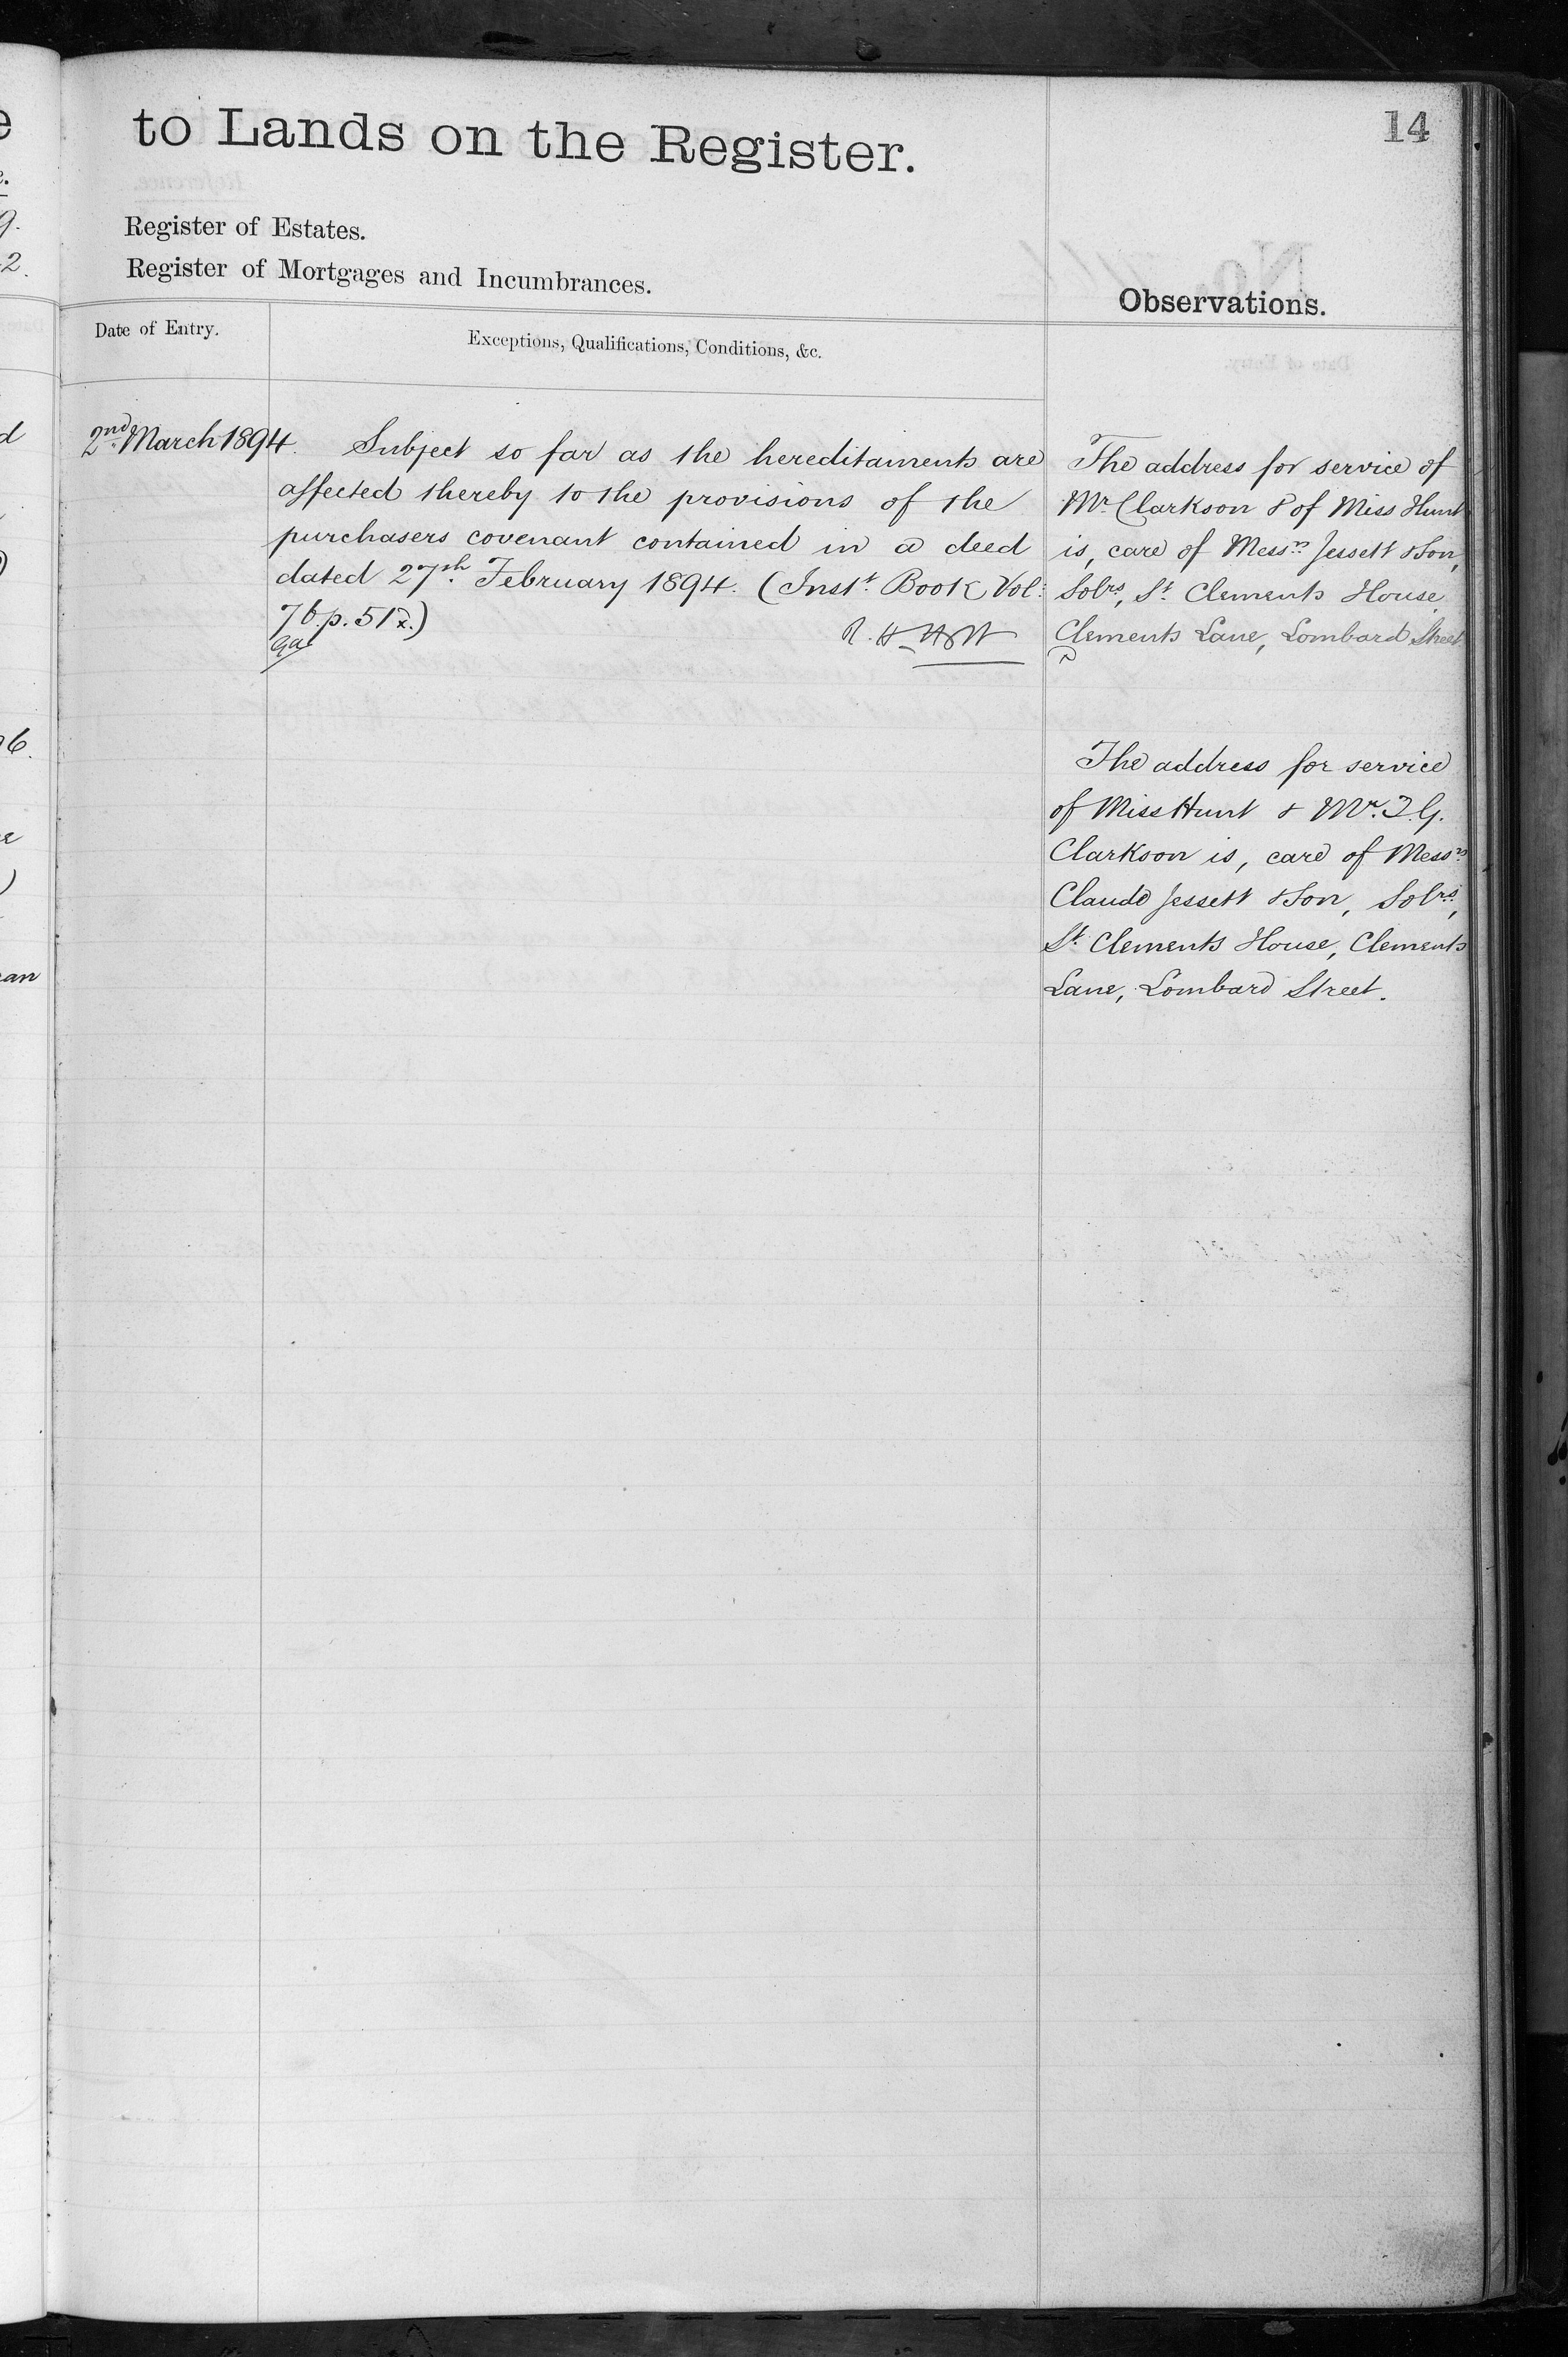 to Lands on the Register.
14
Register of Estates.
Register of Mortgages and Incumbrances.
Observations.
Date of Entry.
Exceptions, Qualifications, Conditions, &c.
2nd March 1894.
Subject so far as the hereditaments are
affected thereby to the provisions of the
purchasers covenant contained in a deed
dated 27th February 1894. (Inst. Book Vol:
76. p. 517.)
The address for service of
Mr. Clarkson & of Miss Hunt
is, care of Messrs. Jessett & Son,
Solrs, St. Clements House
Clements Lane, Lombard Street
The address for service
of Miss Hunt & Mr. T. G.
Clarkson is, care of Messrs
Claude Jessett & Son, Solrs,
St. Clements House, Clements
Lane, Lombard Street.